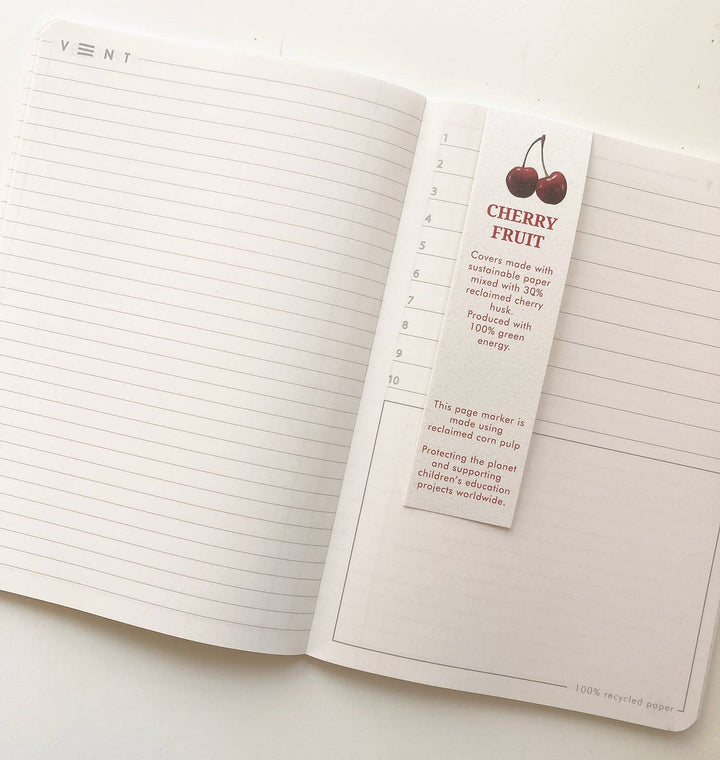 VENT
1
2
3
4
5
6
7
8
9
10
CHERRY
FRUIT
Covers made with
sustainable paper
mixed with 30%
reclaimed cherry
husk.
Produced with
100% green
energy.
This page marker is
made using
reclaimed corn pulp
Protecting the planet
and supporting
children's education
projects worldwide.
100% recycled paper